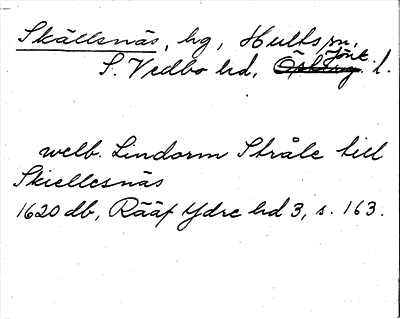 Skällsnäs, hg, Hults sn,
S. Vedbo hd, Jönk. l.
welb. Lindorm Stråle till
Skiellesnäs
1620 db, Rääf Ydre hd 3, s. 163.